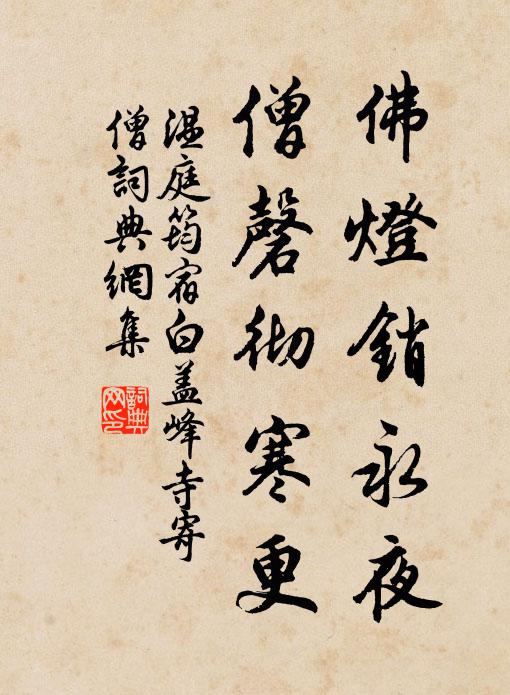 佛燈銷永夜
僧磬彻寒更
温庭筠宿白盖峰寺寄
僧詞典網集
詞典
网印